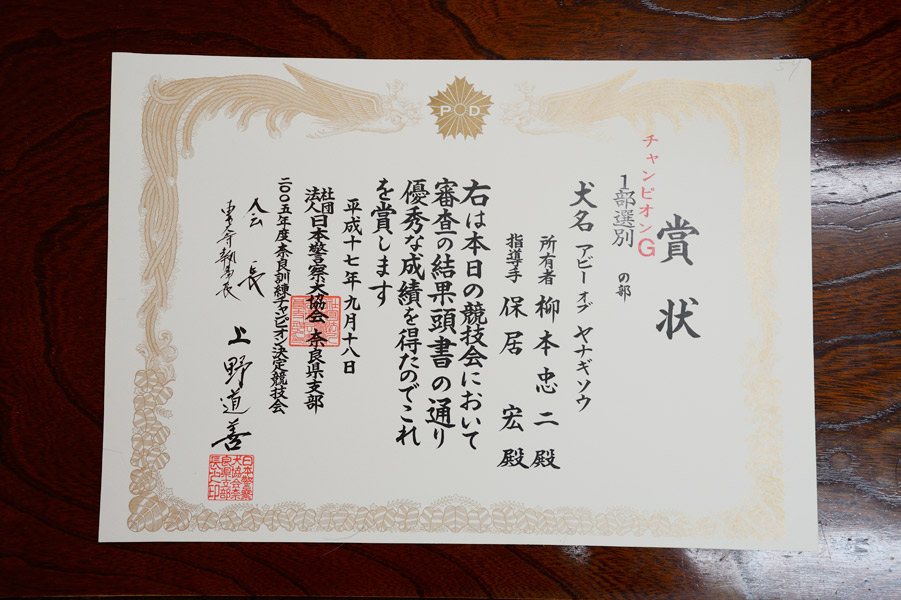 PD
賞状
チャンピオンG
1部選別 の部
犬名 アビー オブ ヤナギソウ
所有者 柳本忠二殿
指導手 保居宏殿
右は本日の競技会において
審査の結果頭書の通り
優秀な成績を得たのでこれ
を賞します
平成十七年九月十八日
社団法人日本警察犬協会 奈良県支部
二〇〇五年度奈良訓練チャンピオン決定競技会
会長
上野道善
日本警察
犬協会奈
良県支部
長之印